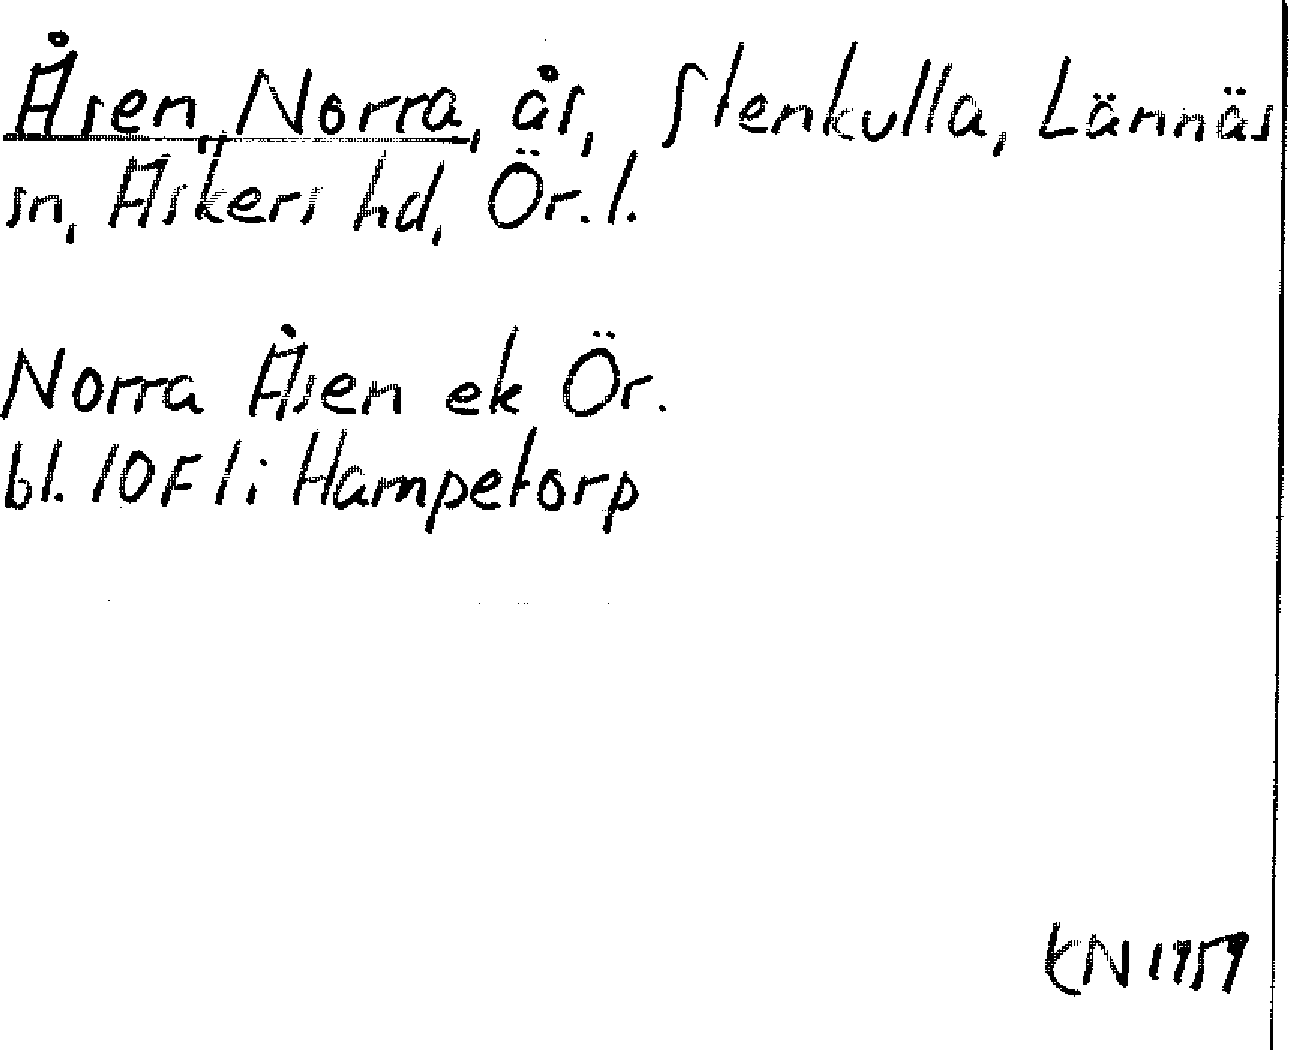 Åsen, Norra, ås, Stenkulla, Lännäs
sn, Askers hd, Ör. l.
Norra Åsen ek Ör.
bl. 10F1i Hampetorp
KN 1959